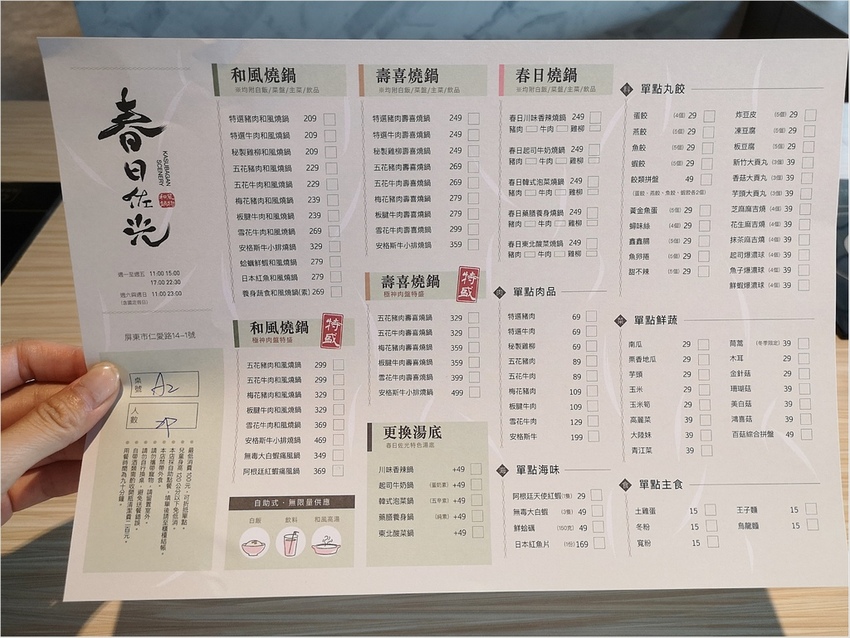 春日佐光
KASUGASAN
SCENERY
週一至週五 11:00 15:00
17:00 22:30
週六與週日 11:00 23:00
屏東市仁愛路14-1號
桌號 A2
人數
最低消費100元，可折抵單點。
本店禁帶外食。
和風燒鍋
※均附白飯/菜盤/主菜/飲品
特選豬肉和風燒鍋 209
特選牛肉和風燒鍋 209
秘製雞柳和風燒鍋 209
五花豬肉和風燒鍋 229
五花牛肉和風燒鍋 229
梅花豬肉和風燒鍋 239
板腱牛肉和風燒鍋 239
雪花牛肉和風燒鍋 269
安格斯牛小排燒鍋 329
蛤蠣鮮蝦和風燒鍋 279
日本紅魚和風燒鍋 279
養身蔬食和風燒鍋(素) 269
和風燒鍋 特盛
極神肉盤特盛
五花豬肉和風燒鍋 299
五花牛肉和風燒鍋 299
梅花豬肉和風燒鍋 329
板腱牛肉和風燒鍋 329
雪花牛肉和風燒鍋 369
安格斯牛小排燒鍋 469
無毒大白蝦痛風鍋 369
阿根廷紅蝦痛風鍋 369
自助式・無限量供應
白飯 飲料 和風高湯
壽喜燒鍋
※均附白飯/菜盤/主菜/飲品
特選豬肉壽喜燒鍋 249
特選牛肉壽喜燒鍋 249
秘製雞柳壽喜燒鍋 249
五花豬肉壽喜燒鍋 269
五花牛肉壽喜燒鍋 269
梅花豬肉壽喜燒鍋 279
板腱牛肉壽喜燒鍋 279
雪花牛肉壽喜燒鍋 299
安格斯牛小排燒鍋 359
壽喜燒鍋 特盛
極神肉盤特盛
五花豬肉壽喜燒鍋 329
五花牛肉壽喜燒鍋 329
梅花豬肉壽喜燒鍋 359
板腱牛肉壽喜燒鍋 359
雪花牛肉壽喜燒鍋 399
安格斯牛小排燒鍋 499
更換湯底
春日佐光特色湯底
川味香辣鍋 +49
起司牛奶鍋 +49
韓式泡菜鍋 +49
藥膳養身鍋 +49
東北酸菜鍋 +49
春日燒鍋
※均附白飯/菜盤/主菜/飲品
春日川味香辣燒鍋 249
豬肉 牛肉 雞柳
春日起司牛奶燒鍋 249
豬肉 牛肉 雞柳
春日韓式泡菜燒鍋 249
豬肉 牛肉 雞柳
春日藥膳養身燒鍋 249
豬肉 牛肉 雞柳
春日東北酸菜燒鍋 249
豬肉 牛肉 雞柳
單點肉品
特選豬肉 69
特選牛肉 69
秘製雞柳 69
五花豬肉 89
五花牛肉 89
梅花豬肉 109
板腱牛肉 109
雪花牛肉 129
安格斯牛 199
單點海味
阿根廷天使紅蝦 29
無毒大白蝦 49
鮮蛤蠣 49
日本紅魚片 169
單點丸餃
蛋餃 29
燕餃 29
魚餃 29
蝦餃 29
餃類拼盤 49
(蛋餃、燕餃、魚餃、蝦餃各2個)
黃金魚蛋 29
蟳味絲 29
鑫鑫腸 29
魚卵捲 29
甜不辣 29
炸豆皮 29
凍豆腐 29
板豆腐 29
新竹大貢丸 39
香菇大貢丸 39
芋頭大貢丸 39
芝麻麻吉燒 39
花生麻吉燒 39
抹茶麻吉燒 39
起司爆漿球 39
魚子爆漿球 39
鮮蝦爆漿球 39
單點鮮蔬
南瓜 29
栗香地瓜 29
芋頭 29
玉米 29
玉米筍 29
高麗菜 39
大陸妹 39
青江菜 39
茼蒿 39
木耳 29
金針菇 29
珊瑚菇 39
美白菇 39
鴻喜菇 39
百菇綜合拼盤 49
單點主食
土雞蛋 15
冬粉 15
寬粉 15
王子麵 15
烏龍麵 15